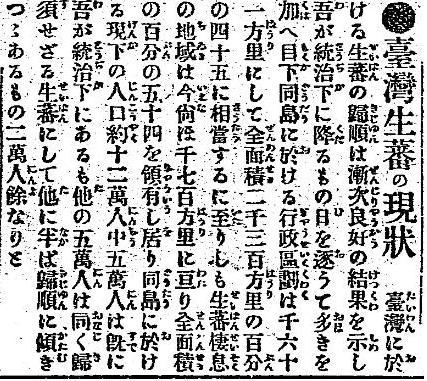 ●臺灣生蕃の現狀　臺灣に於
ける生蕃の歸順は漸次良好の結果を示し
吾が統治下に降るもの日を逐うて多きを
加へ目下同島に於ける行政區劃は千六十
一方里にして全面積二千三百方里の百分
の四十五に相當するに至りしも生蕃棲息
の地域は今尙ほ千七百方里に亘り全面積
の百分の五十四を領有し居り同島に於け
る現下の人口約十二萬人中五萬人は旣に
吾が統治下にあるも他の五萬人は同く歸
須せざる生蕃にして他に半ば歸順に傾き
つゝあるもの二萬人餘なりと